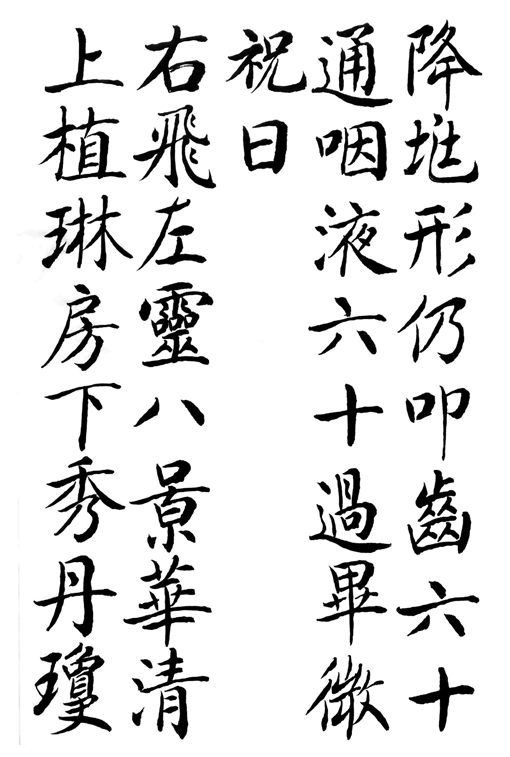 降坒形仍叩齒六十
通咽液六十過畢微
祝日
右飛左靈八景華清
上植琳房下秀丹瓊